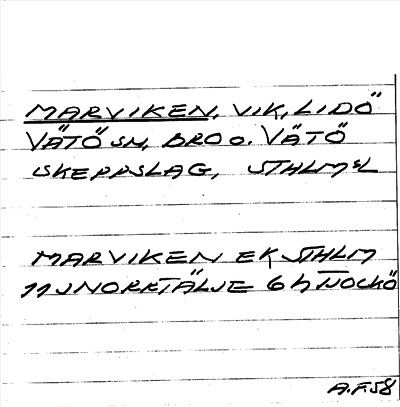 MARVIKEN, VIK, LIDÖ
VÄTÖ SN, BRO O. VÄTÖ
SKEPPSLAG, STHLMSL
MARVIKEN EK STHLM
11J NORRTÄLJE 6h TJOCKÖ
A.F.58